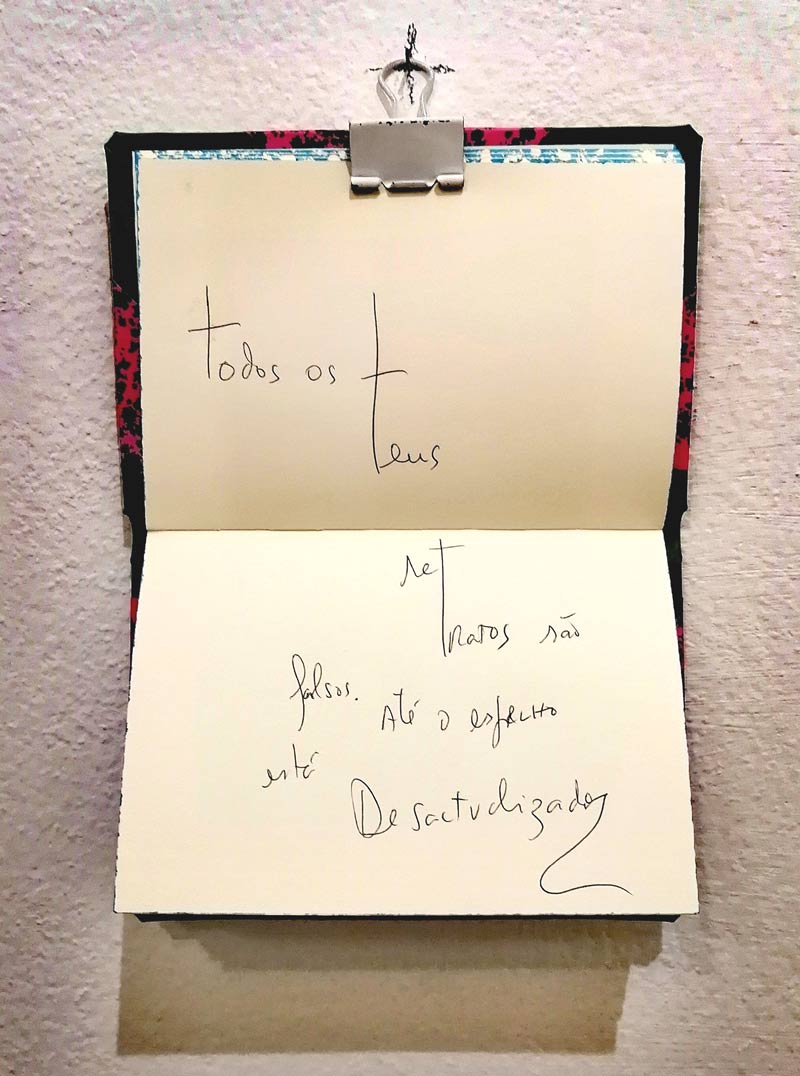 todos os
teus
ret
ratos são
falsos.
Até o espelho
está
Desactualizado